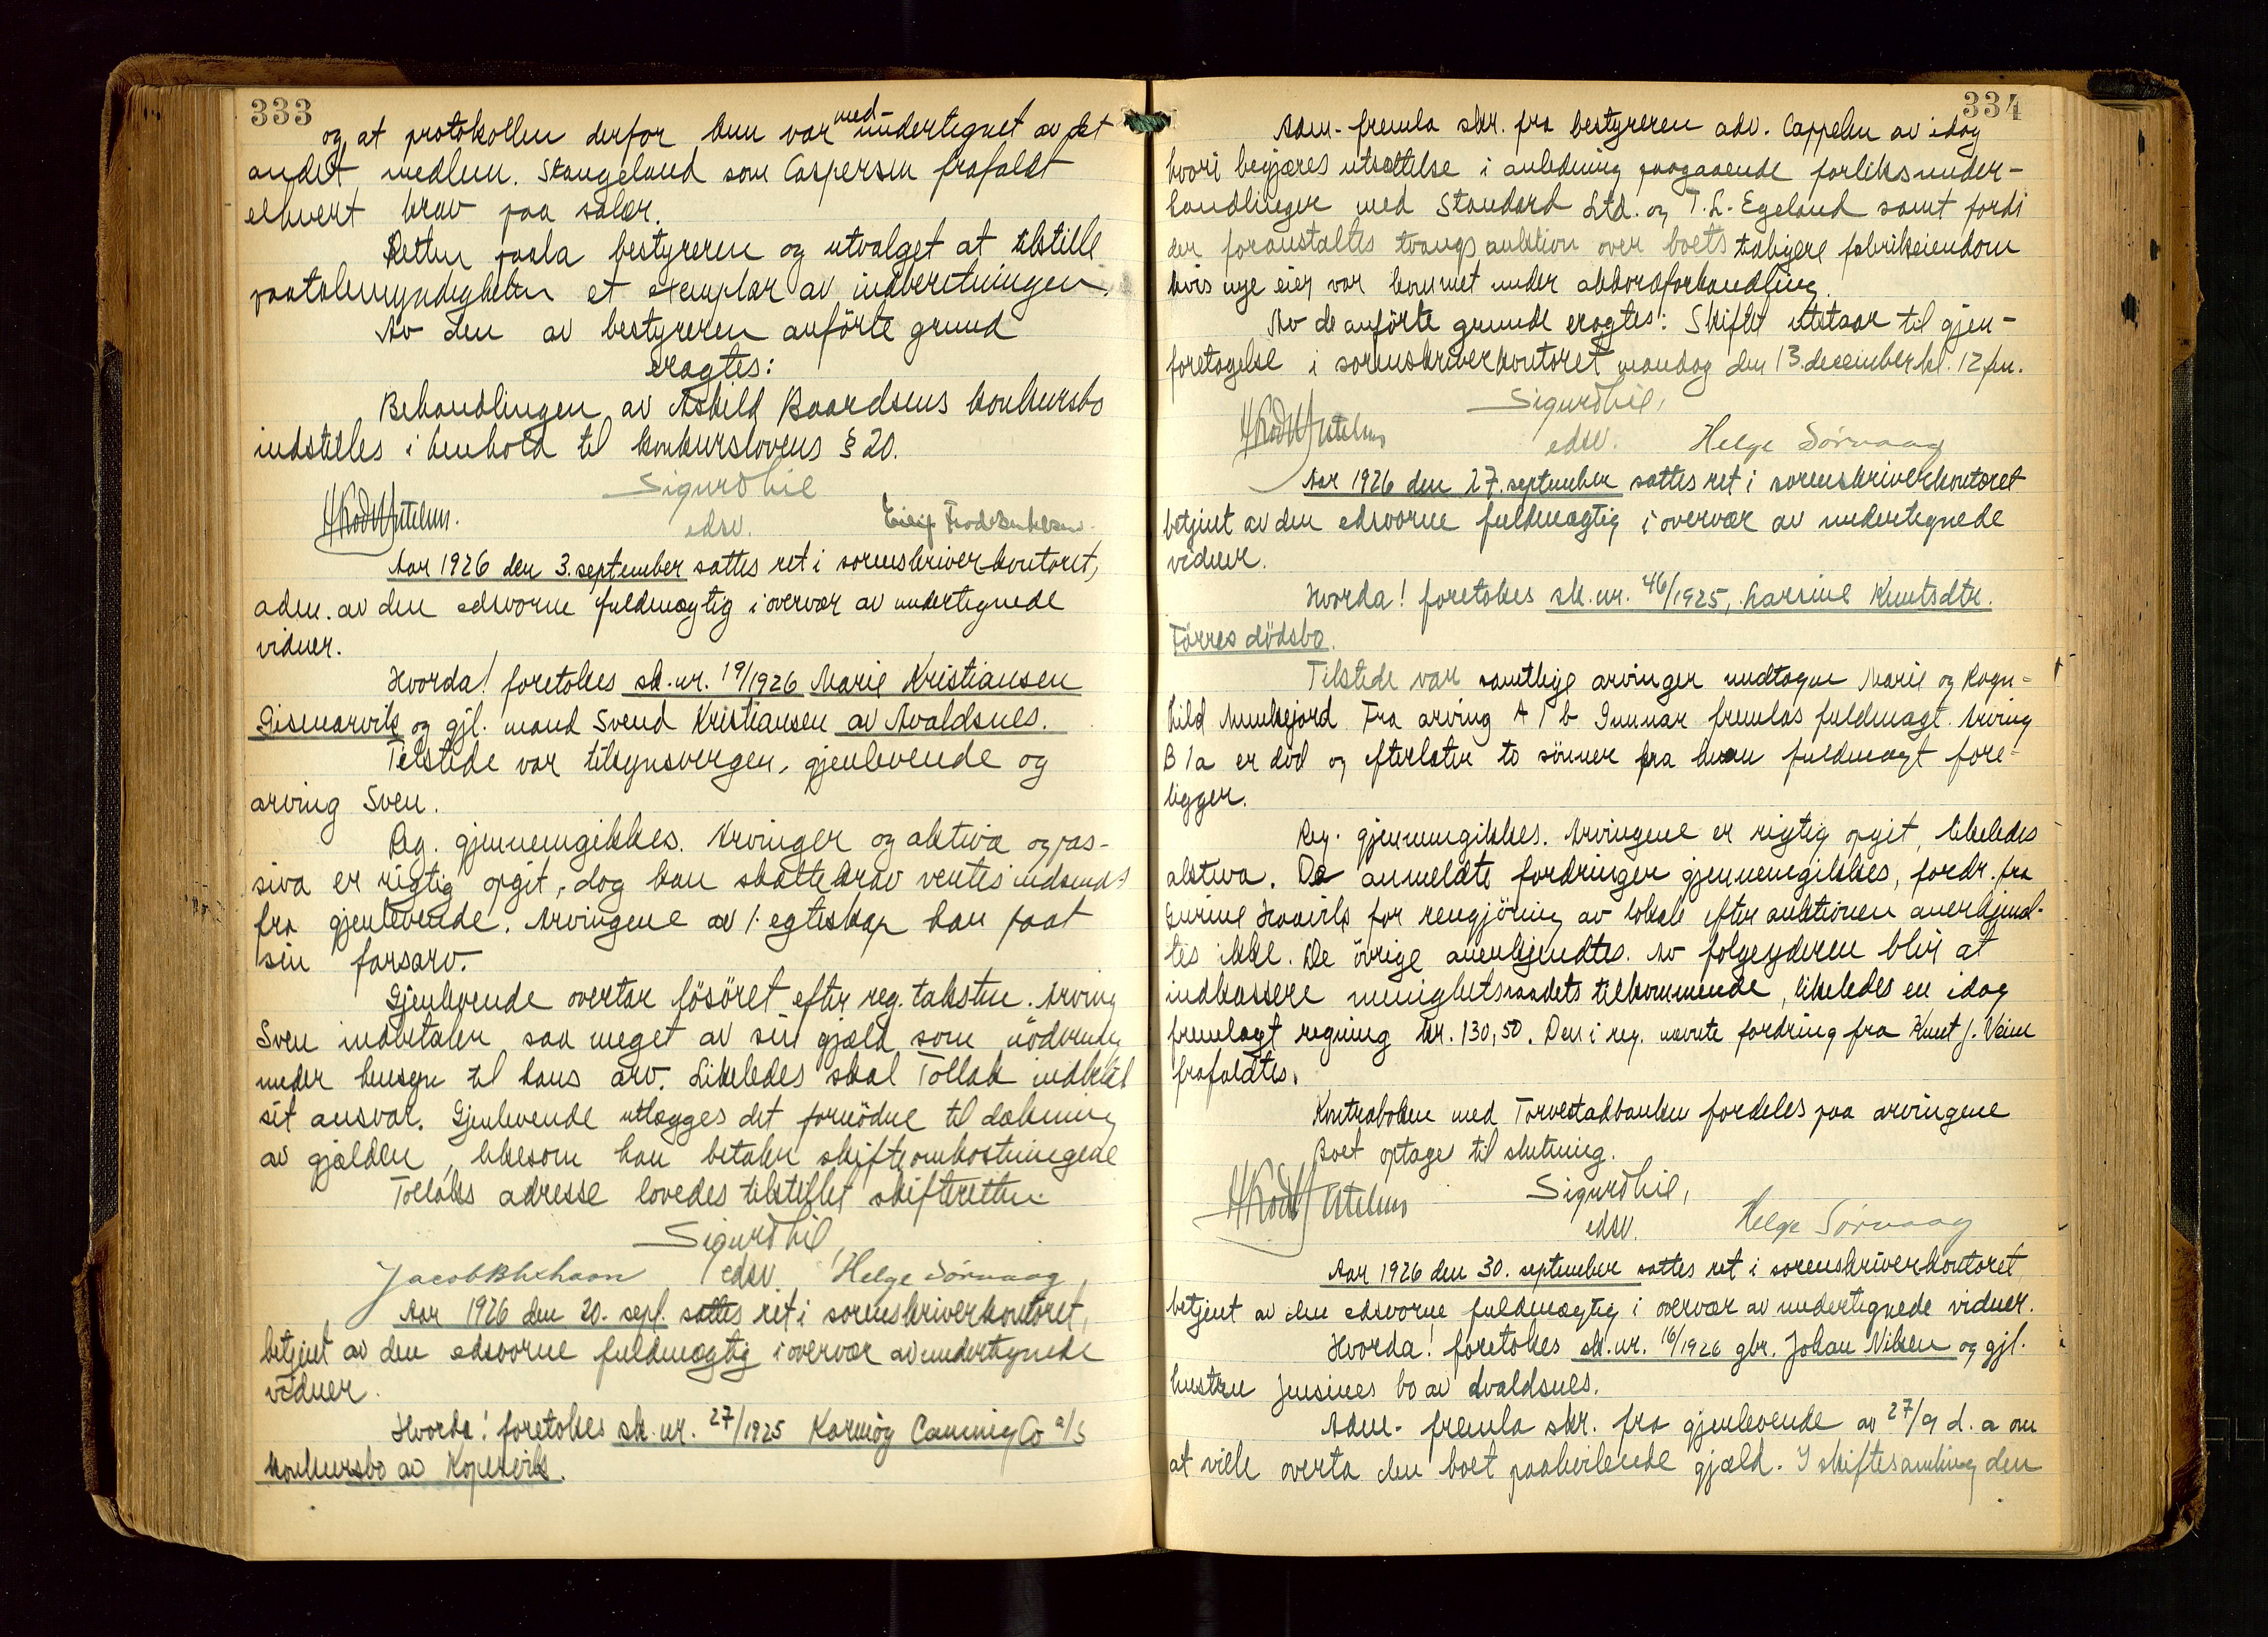 333
og at protokollen derfor kun var med-undertegnet av det
andet medlem. Stangeland som Caspersen frafaldt
ethvert krav paa salær.
Retten paala bestyreren og utvalget at tilstille
paatalemyndigheten et exemplar av indberetningen.
Av den av bestyreren anförte grund
eragtes:
Behandlingen av Askild Baardsens konkursbo
indstilles i henhold til konkurslovens § 20.
Sigurd Lie
edsv.
Aar 1926 den 3. september sattes ret i sorenskriverkontoret,
adm. av den edsvorne fuldmægtig i overvær av undertegnede
vidner.
Hvorda! foretokes sk. nr. 19/1926 Marie Kristiansen
Gismarvik og gjl. mand Svend Kristiansen av Avaldsnes.
Tilstede var tilsynsvergen, gjenlevende og
arving Sven.
Reg. gjennemgikkes. Arvinger og aktiva og pas-
siva er rigtig opgit, dog kan skattekrav ventes indsendt
fra gjenlevende. Arvingene av 1. egteskap har faat
sin farsarv.
Gjenlevende overtar lösöret efter reg. taksten. Arving
Sven indbetaler saa meget av sin gjæld som nödvendig
under hensyn til hans arv. Likeledes skal Tollak indbetale
sit ansvar. Gjenlevende utlægges det fornödne til dækning
av gjælden, likesom han betaler skifteomkostningene
Tollaks adresse lovedes tilstillet skifteretten
Sigurd Lie,
edsv. Helge Sörvaag
Aar 1926 den 20. sept. sattes ret i sorenskriverkontoret,
betjent av den edsvorne fuldmægtig i overvær av undertegnede
vidner.
Hvorda! foretokes sk. nr. 27/1925 Karmöy Canning Co a/s
konkursbo av Kopervik.
334
Adm. fremla skr. fra bestyreren adv. Cappelen av idag
hvori begjæres utsættelse i anledning paagaaende forliksunder-
handlinger med Standard Ltd. og T. L. Egeland samt fordi
der foranstaltes tvangsauktion over boets tidligere fabrikeiendom
hvis nye eier var kommet under akkordforhandling.
Av de anförte grunde eragtes: Skiftet utstaar til gjen-
foretagelse i sorenskriverkontoret mandag den 13. december kl. 12 fm.
Sigurd Lie,
edsv. Helge Sörvaag
Aar 1926 den 27. september sattes ret i sorenskriverkontoret
betjent av den edsvorne fuldmægtig i overvær av undertegnede
vidner.
Hvorda! foretokes sk. nr. 46/1925, Larsine Knutsdtr.
Förres dödsbo.
Tilstede var samtlige arvinger undtagen Marie og Ragn-
hild Munkejord. Fra arving A 1 b Gunnar fremlas fuldmagt. Arving
B 1a er död og efterlater to sönner fra hvem fuldmagt fore-
ligger.
Reg. gjennemgikkes. Arvingene er rigtig opgit, likeledes
aktiva. De anmeldte fordringer gjennemgikkes, fordr. fra
Gurine Haavik for rengjöring av lokale efter auktionen anerkjend-
tes ikke. De övrige anerkjendtes. Av fölgeyderen blir at
indkassere menighetsraadets tilkommende, likeledes en idag
fremlagt regning kr. 130,50. Den i reg. nævnte fordring fra Knut J. Veim
frafaldtes.
Kontraboken med Torvestadbanken fordeles paa arvingene
Boet optages til slutning.
Sigurd Lie,
edsv. Helge Sörvaag
Aar 1926 den 30. september sattes ret i sorenskriverkontoret
betjent av den edsvorne fuldmægtig i overvær av undertegnede vidner.
Hvorda! foretokes sk. nr. 16/1926 gbr. Johan Nilsen og gjl.
hustru Jensines bo av Avaldsnes.
Adm. fremla skr. fra gjenlevende av 27/9 d. a om
at ville overta den boet paahvilende gjæld. I skiftesamling den